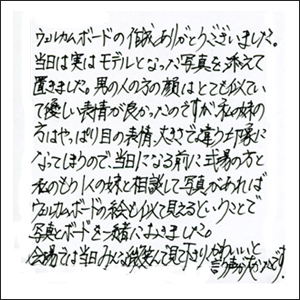 ウェルカムボードの作成ありがとうございました。
当日は実はモデルとなった写真を添えて
置きました。男の人の方の顔はとても似てい
て優しい表情が良かったのですが私の妹の
方はやっぱり目の表情、大きさで違う印象に
なってしまうので、当日になる前に式場の方と
私のもう1人の妹と相談して写真があれば
ウェルカムボードの絵も似て見えるということで
写真とボードを一緒におきました。
会場では当日みんな微笑んで見て下さりかわいいと
言う声が花かたです。